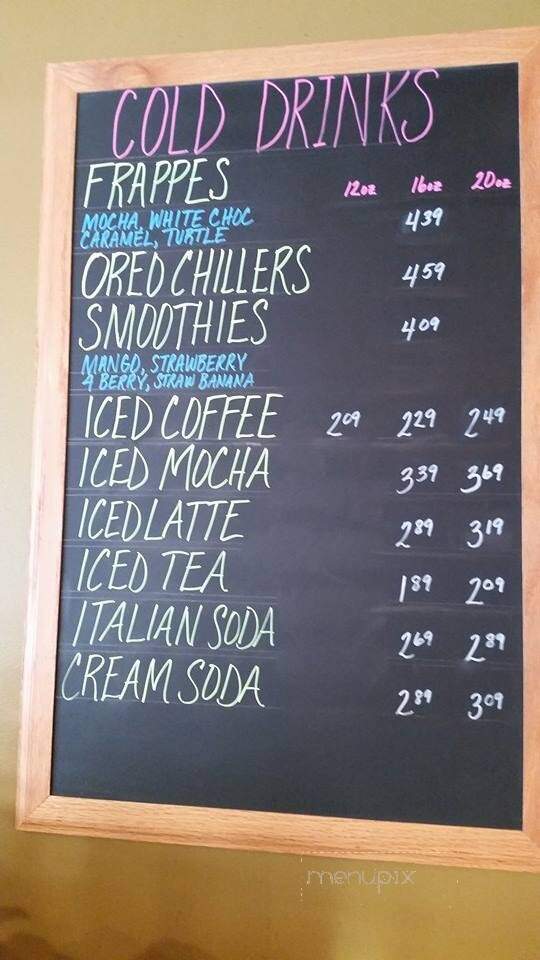 COLD DRINKS
FRAPPES 12oz 16oz 20oz
MOCHA, WHITE CHOC 4 39
CARAMEL, TURTLE
OREO CHILLERS 4 59
SMOOTHIES 4 09
MANGO, STRAWBERRY
4 BERRY, STRAW BANANA
ICED COFFEE 2 09 2 29 2 49
ICED MOCHA 3 39 3 69
ICED LATTE 2 89 3 19
ICED TEA 1 89 2 09
ITALIAN SODA 2 69 2 89
CREAM SODA 2 89 3 09
menupix